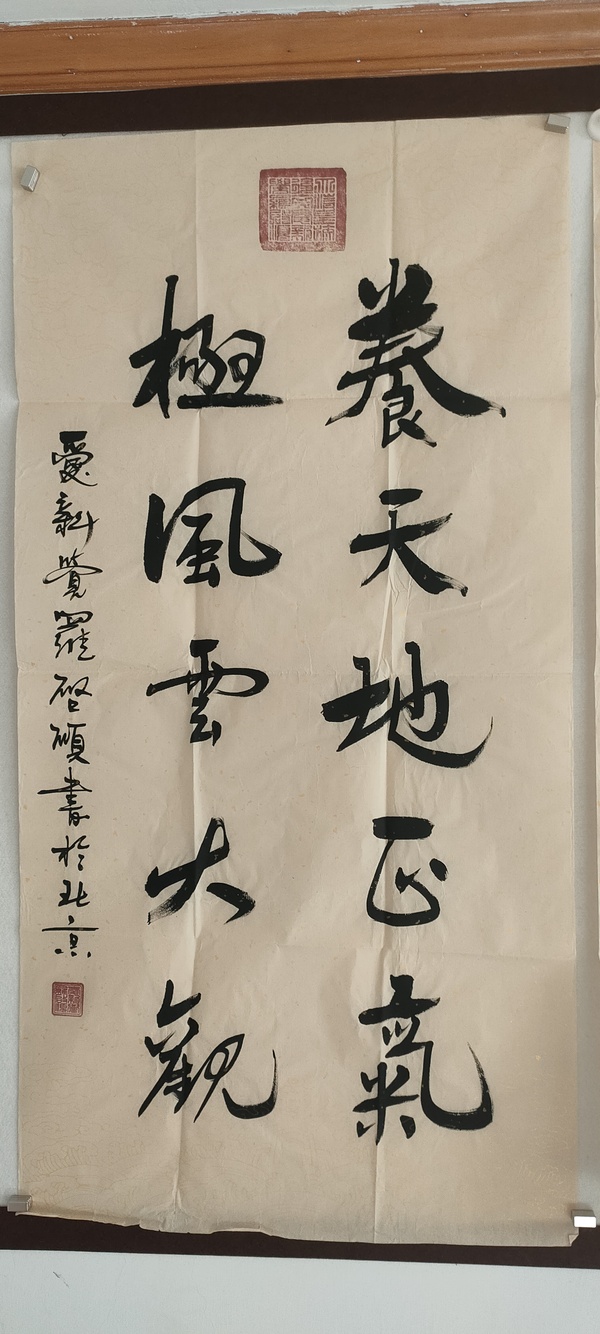 養天地正氣
極風雲大觀
愛新覺羅啓碩書於北京